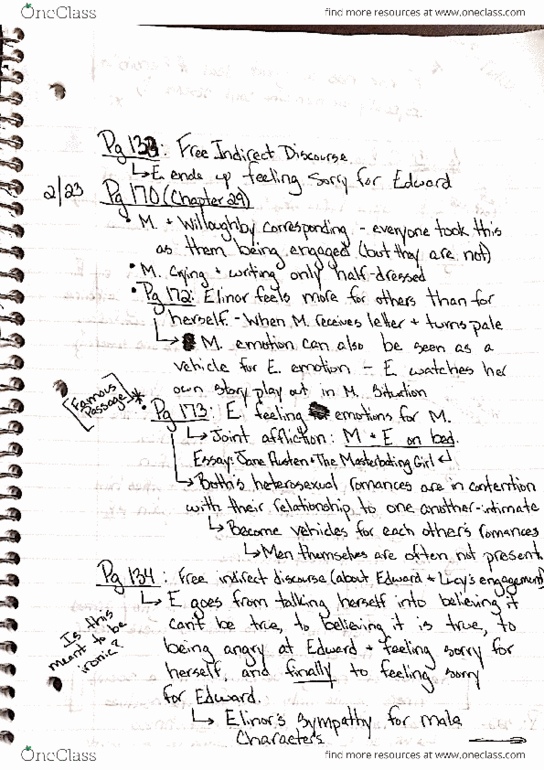 OneClass
find more resources at www.oneclass.com
Pg 133: Free Indirect Discourse
↳ E. ends up feeling sorry for Edward
2/23 Pg 170 (Chapter 29)
• M. + Willoughby corresponding - everyone took this
as them being engaged (but they are not)
• M. Crying + writing only half-dressed
• Pg 172: Elinor feels more for others than for
herself. - When M. receives letter + turns pale
↳ M. emotion can also be seen as a
vehicle for E. emotion - E watches her
own story play out in M. Situation
[Famous Passage] * • Pg 173: E feeling emotions for M.
↳ Joint affliction: M + E on bed.
Essay: Jane Austen + The Masterbating Girl ↲
↳ Both's heterosexual romances are in contention
with their relationship to one another - intimate
↳ Become vehicles for each other's romances
↳ Men themselves are often not present
Pg 134: Free indirect discourse (about Edward + Lucy's engagement)
↳ E goes from talking herself into believing it
can't be true, to believing it is true, to
being angry at Edward + feeling sorry for
herself, and finally to feeling sorry
for Edward.
Is this
meant to be
ironic?
↳ Elinor's Sympathy for male
Characters
OneClass
find more resources at www.oneclass.com